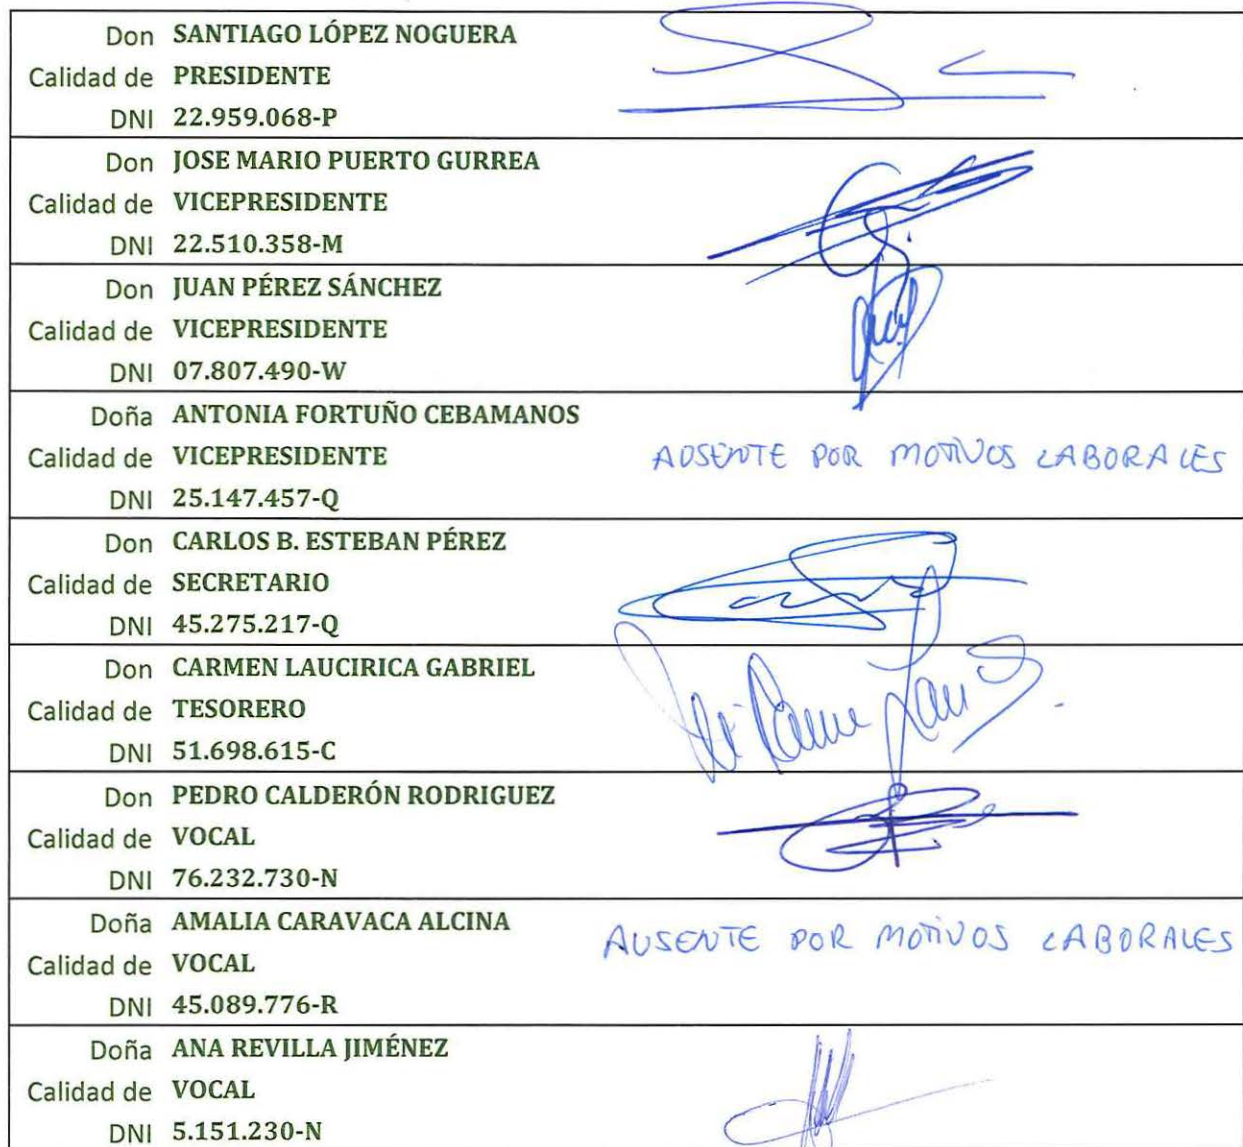 Don SANTIAGO LÓPEZ NOGUERA
Calidad de PRESIDENTE
DNI 22.959.068-P
Don JOSE MARIO PUERTO GURREA
Calidad de VICEPRESIDENTE
DNI 22.510.358-M
Don JUAN PÉREZ SÁNCHEZ
Calidad de VICEPRESIDENTE
DNI 07.807.490-W
Doña ANTONIA FORTUÑO CEBAMANOS
Calidad de VICEPRESIDENTE AUSENTE POR MOTIVOS LABORALES
DNI 25.147.457-Q
Don CARLOS B. ESTEBAN PÉREZ
Calidad de SECRETARIO
DNI 45.275.217-Q
Don CARMEN LAUCIRICA GABRIEL
Calidad de TESORERO
DNI 51.698.615-C
Don PEDRO CALDERÓN RODRIGUEZ
Calidad de VOCAL
DNI 76.232.730-N
Doña AMALIA CARAVACA ALCINA AUSENTE POR MOTIVOS LABORALES
Calidad de VOCAL
DNI 45.089.776-R
Doña ANA REVILLA JIMÉNEZ
Calidad de VOCAL
DNI 5.151.230-N